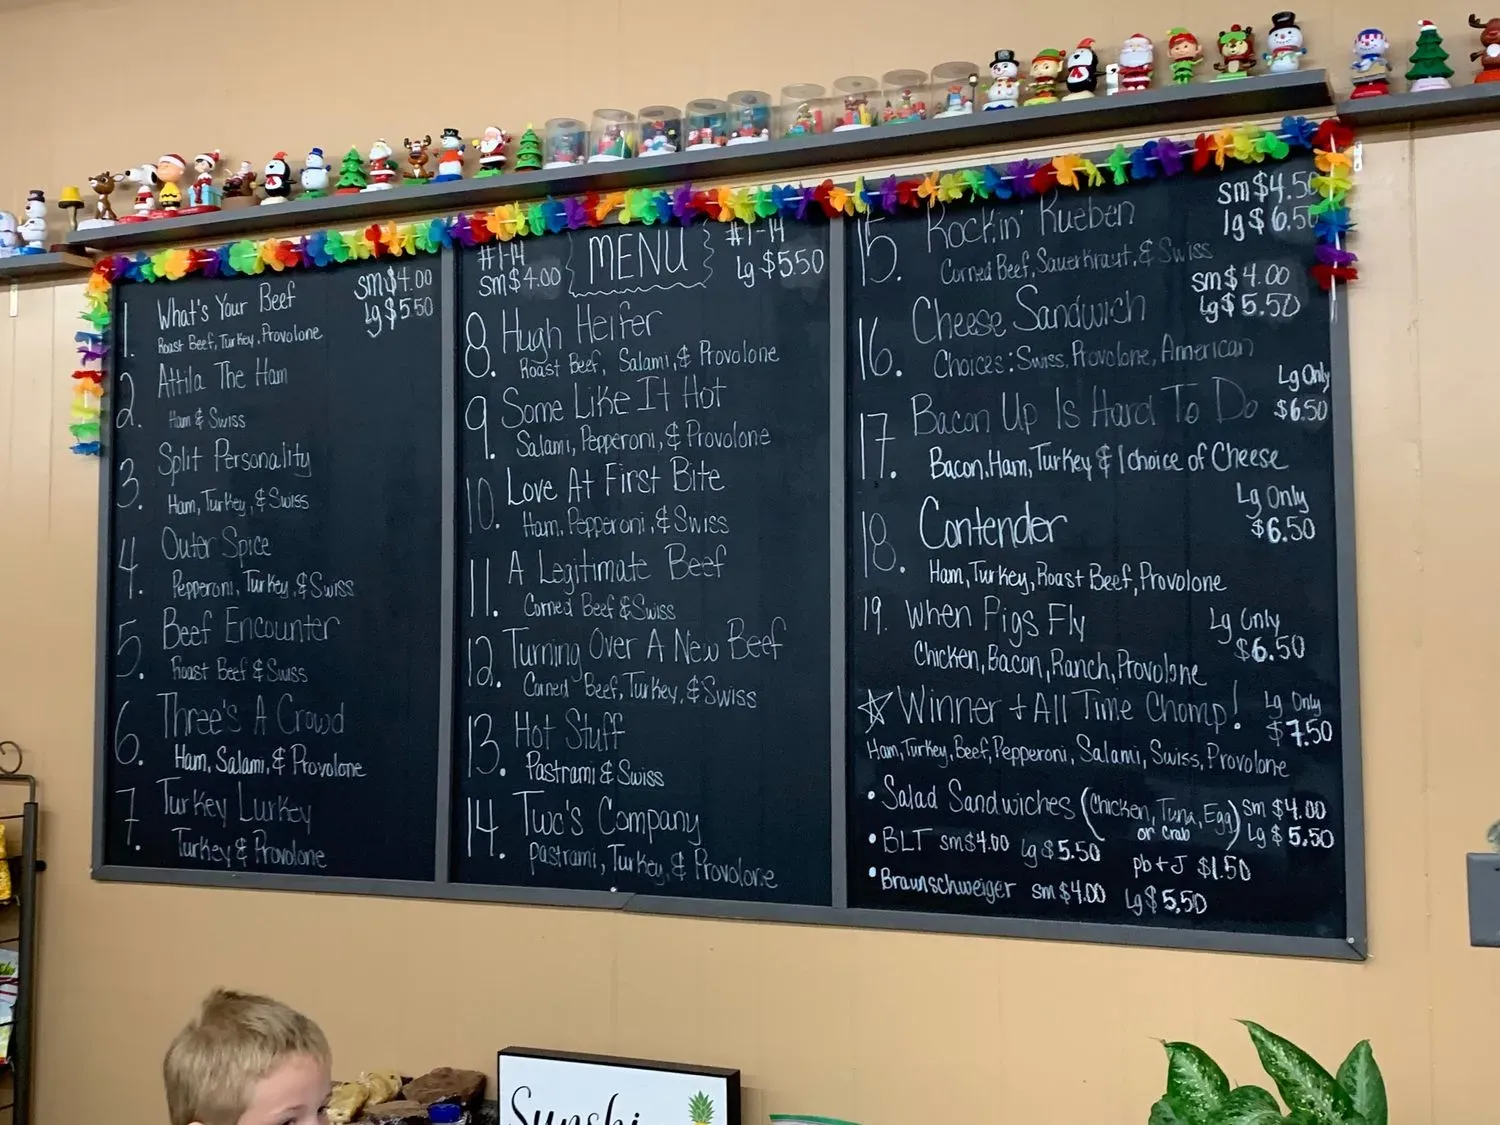 1. What's Your Beef
sm $4.00
lg $5.50
Roast Beef, Turkey, Provolone
2. Attila The Ham
Ham & Swiss
3. Split Personality
Ham, Turkey, & Swiss
4. Outer Spice
Pepperoni, Turkey, & Swiss
5. Beef Encounter
Roast Beef & Swiss
6. Three's A Crowd
Ham, Salami, & Provolone
7. Turkey Lurkey
Turkey & Provolone
#1-14
sm $4.00
MENU
#1-14
Lg $5.50
8. Hugh Heifer
Roast Beef, Salami, & Provolone
9. Some Like It Hot
Salami, Pepperoni, & Provolone
10. Love At First Bite
Ham, Pepperoni, & Swiss
11. A Legitimate Beef
Corned Beef & Swiss
12. Turning Over A New Beef
Corned Beef, Turkey, & Swiss
13. Hot Stuff
Pastrami & Swiss
14. Two's Company
pastrami, Turkey, & Provolone
15. Rockin' Rueben
sm $4.50
lg $6.50
Corned Beef, Sauerkraut, & Swiss
16. Cheese Sandwich
sm $4.00
Lg $5.50
Choices: Swiss, Provolone, American
17. Bacon Up Is Hard To Do
Lg Only
$6.50
Bacon, Ham, Turkey & 1 choice of Cheese
18. Contender
Lg Only
$6.50
Ham, Turkey, Roast Beef, Provolone
19. When Pigs Fly
Lg Only
$6.50
Chicken, Bacon, Ranch, Provolone
☆ Winner + All Time Chomp!
Lg Only
$7.50
Ham, Turkey, Beef, Pepperoni, Salami, Swiss, Provolone
• Salad Sandwiches (Chicken, Tuna, Egg or Crab) sm $4.00
Lg $5.50
• BLT sm $4.00 lg $5.50 pb + J $1.50
• Braunschweiger sm $4.00 Lg $5.50